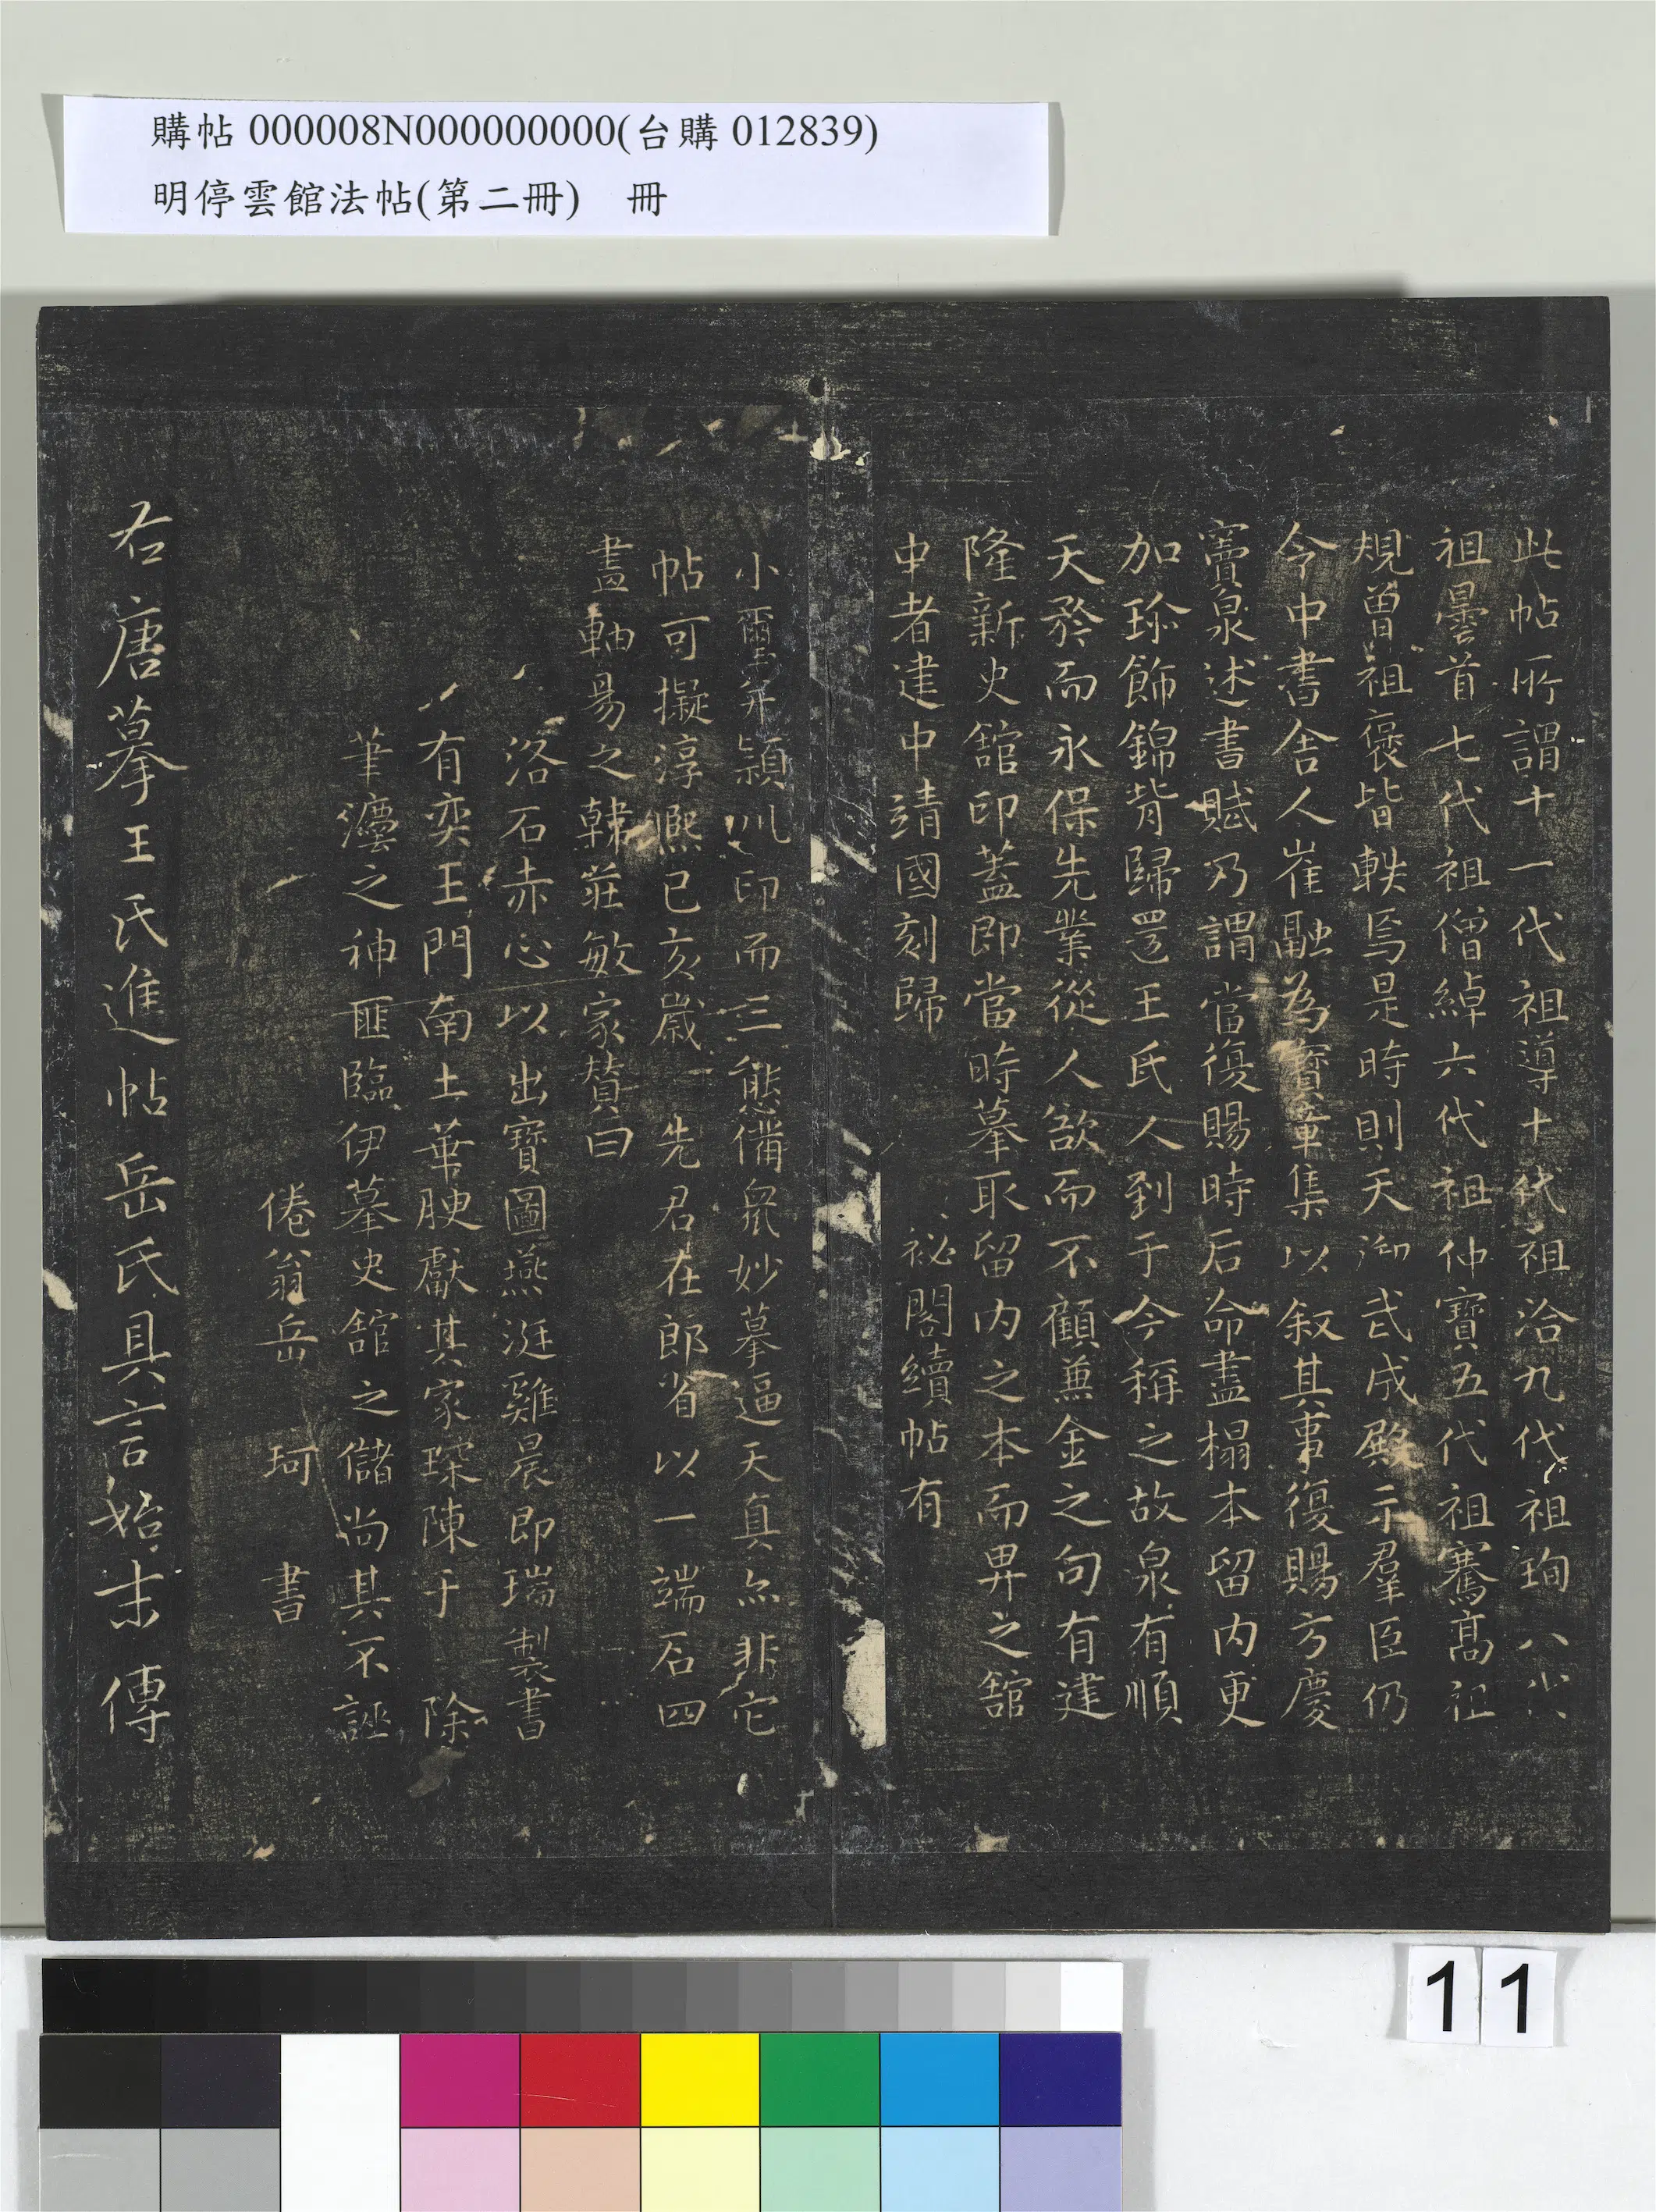 購帖 000008N000000000(台購 012839)
明停雲館法帖(第二冊) 冊
此帖所謂十一代祖導十代祖洽九代祖珣八代
祖曇首七代祖僧綽六代祖仲寶五代祖騫高祖
規曾祖褒皆軼焉是時則天御武成殿示羣臣仍
令中書舍人崔融為寶章集以叙其事復賜方慶
竇泉述書賦乃謂當復賜時后命盡榻本留內更
加珎飾錦背歸還王氏人到于今稱之故泉有順
天矜而永保先業從人欲而不顧兼金之句有建
隆新史舘印蓋即當時摹取留內之本而畀之舘
中者建中靖國刻歸 祕閣續帖有
小璽并潁川印而三態備衆妙摹逼天真尒非它
帖可擬淳熈已亥歲 先君在郎省以一端石四
畫軸易之韓莊敏家贊曰
洛石赤心以出寶圖燕涎雞晨即瑞製書
有奕王門南土華腴獻其家琛陳于 除
筆灋之神匪臨伊摹史舘之儲尚其不誣
倦翁岳 珂 書
右唐摹王氏進帖岳氏具言始末傳
11